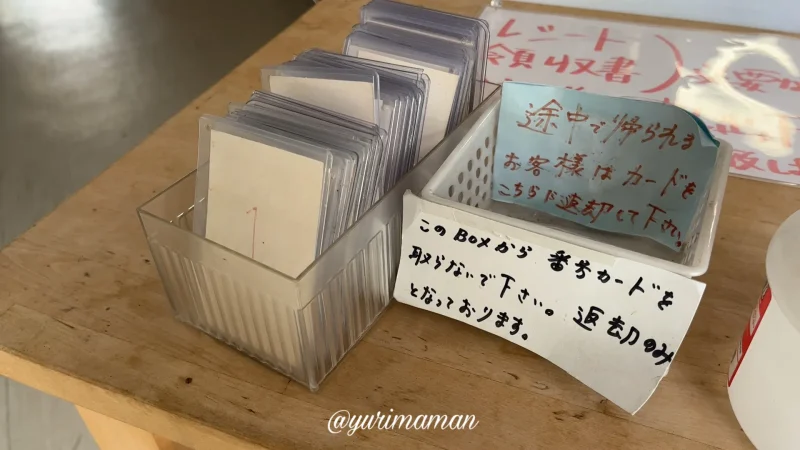 レシート
領収書
途中で帰られる
お客様はカードを
こちらに返却して下さい。
このBoxから 番号カードを
取らないで下さい。返却のみ
となっております。
1
@yurimaman